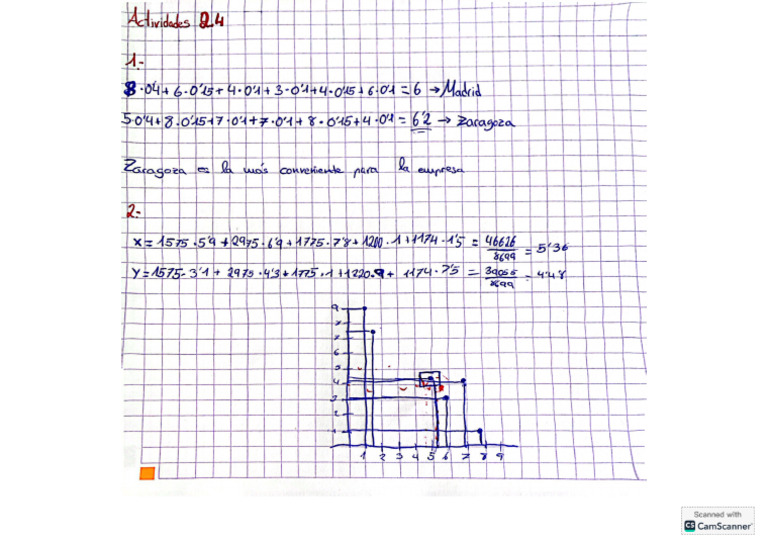 Actividades 2.4
1-
8·0'4+6·0'15+4·0'1+3·0'1+4·0'15+6·0'1=6 → Madrid
5·0'4+8·0'15+7·0'1+7·0'1+8·0'15+4·0'1=6'2 → Zaragoza
Zaragoza es la más conveniente para la empresa
2-
X=1575·5'9+2975·6'9+1775·7'8+1200·1+1174·1'5 = 46626/8699 = 5'36
Y=1575·3'1+2975·4'3+1775·1+1220·9+1174·7'5 = 39055/8699 = 4'48
9
8
7
6
5
4
3
2
1
1 2 3 4 5 6 7 8 9
Scanned with
CS CamScanner